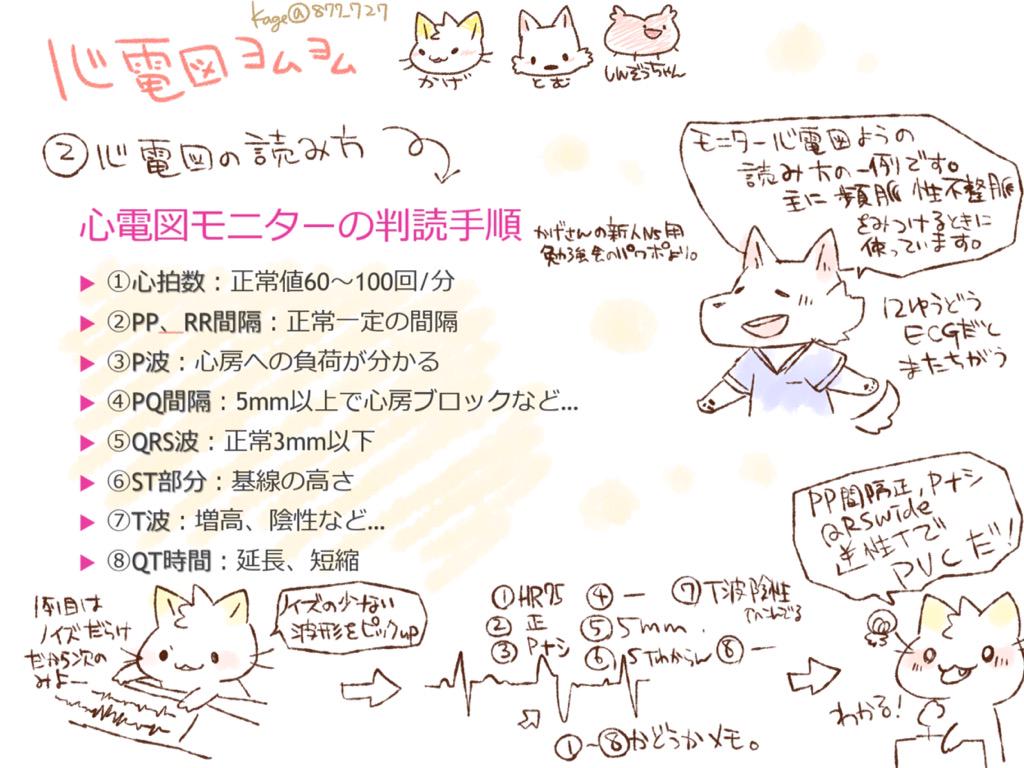 kage@877_727
心電図ヨムヨム
かげ
とむ
しんぞうちゃん
②心電図の読み方
心電図モニターの判読手順
かげさんの新人Ns用
勉強会のパワポより。
▶ ①心拍数：正常値60～100回/分
▶ ②PP、RR間隔：正常一定の間隔
▶ ③P波：心房への負荷が分かる
▶ ④PQ間隔：5mm以上で心房ブロックなど…
▶ ⑤QRS波：正常3mm以下
▶ ⑥ST部分：基線の高さ
▶ ⑦T波：増高、陰性など…
▶ ⑧QT時間：延長、短縮
モニター心電図ようの
読み方の一例です。
主に頻脈性不整脈
をみつけるときに
使っています。
12ゆうどう
ECGだと
またちがう
1列目は
ノイズだらけ
だから次の
みよー
ノイズの少ない
波形をピックup
①HR75
②正
③Pナシ
④ー
⑤5mm.
⑥STわからん
⑦T波陰性
⑧ー
①～⑧かどうかメモ。
PP間隔正、Pナシ
QRSwide
逆性Tで
PVCだ!
わかる!